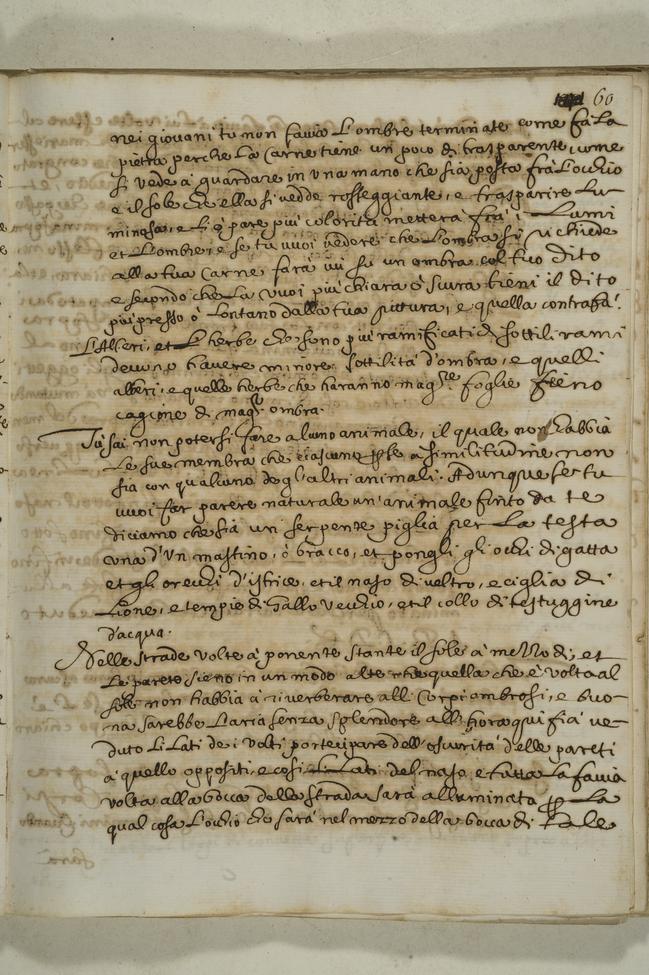 60
nei giovani tù non faccia l'ombre terminate come fà la
pietra perche la Carne tiene un poco di trasparente come
si vede à guardare in una mano che sia posta frà l'occhio
e il sole che ella si vedde rosseggiante, e trasparire lu-
minosa, e li q pare più colorita metterai frà i lumi
et l'ombre, e se tu vuoi vedere che l'ombra si richiede
alla tua Carne farà ivi su un ombra col tuo dito
e secondo che la vuoi più chiara ò scura tieni il dito
più presso ò lontano dalla tua pittura, e quella contrafà.
L'Alberi, et l'herbe che sono più ramificati di sottili rami
devono havere minore sottilità d'ombra, e quelli
alberi, e quelle herbe che haranno mag.re foglie fieno
cagione di mag.r ombra.
Tu sai non potersi fare alcuno animale, il quale non habbia
le sue membra che ciascuno p se a similitudine non
sia con qualcuno de gl'altri animali. Adunque se tu
vuoi far parere naturale un'animale finto da te
diciamo che sià un serpente piglia per la testa
una d'un mastino, ò bracco, et pongli gli occhi di gatta
et gl'orecchi d'istrice, et il naso di veltro, e ciglia di
Lione, e tempie di Gallo vecchio, et il collo di testuggine
d'acqua.
Nelle strade volte à ponente stante il sole à mezzo dì, et
le parete sieno in un modo alte che quella che è volta al
sole non habbia à riverberare alli Corpi ombrosi, e buo-
na sarebbe l'aria senza splendore all'hora qui fia ve-
duto li lati de i volti partecipare dell'oscurità delle pareti
à quello oppositi, e così li lati del naso, e tutta la faccia
volta alla bocca della strada sarà alluminata p la
qual cosa l'occhio che sarà nel mezzo della bocca di tale
sarà